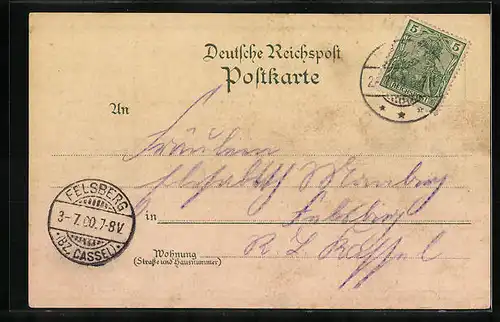 5 5
Deutsche Reichspost
Postkarte
An
Fräulein
Elisabeth
FELSBERG
3-7.00.7-8V.
(BZ. CASSEL)
in Felsberg
R. B. Kassel
Wohnung
(Straße und Hausnummer)